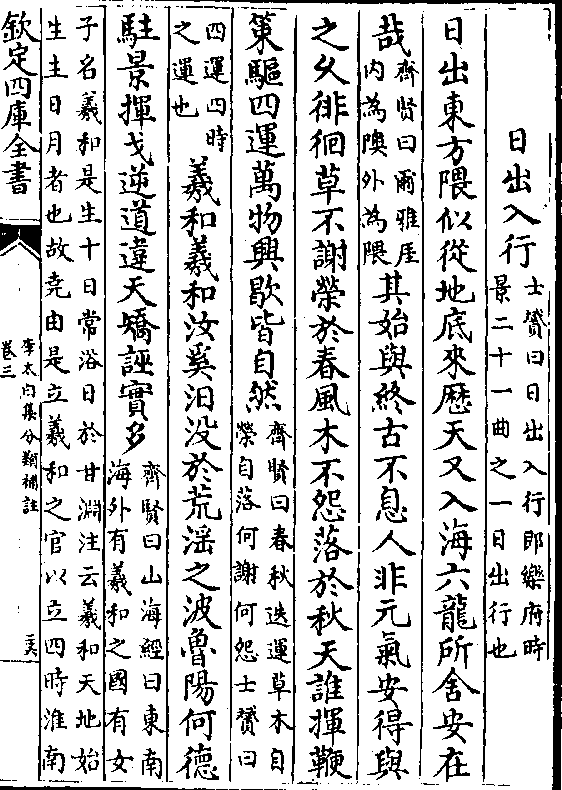 日出入行士贇曰日出入行即樂府時景二十一曲之一日出行也
日出東方隈似從地底來歴天又入海六龍所舍安在
哉齊賢曰爾雅厓内為隩外為隈其始與終古不息人非元氣安得與
之久徘徊草不謝榮於春風木不怨落於秋天誰揮鞭
策驅四運萬物興歇皆自然齊賢曰春秋迭運草木自榮自落何謝何怨士贇曰
四運四時之運也羲和羲和汝奚汨没於荒淫之波魯陽何德
駐景揮戈逆道違天矯誣實多齊賢曰山海經曰東南海外有羲和之國有女
子名羲和是生十日常浴日於甘淵注云羲和天地始
生主日月者也故堯由是立羲和之官以立四時淮南
欽定四庫全書
李太白集分類補註
卷三